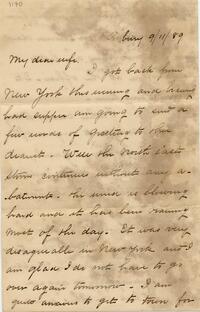 bury 9/11/89
My dear wife.
I got back from
New York this evening and having
had supper am going to send a
few words of greeting to thee
dearest. Well the North east
storm continues without any a-
batement. The wind is blowing
hard and it has been raining
most of the day. It was very
disagreeable in New York and I
am glad I do not have to go
over again tomorrow. I am
quite anxious to get to town for